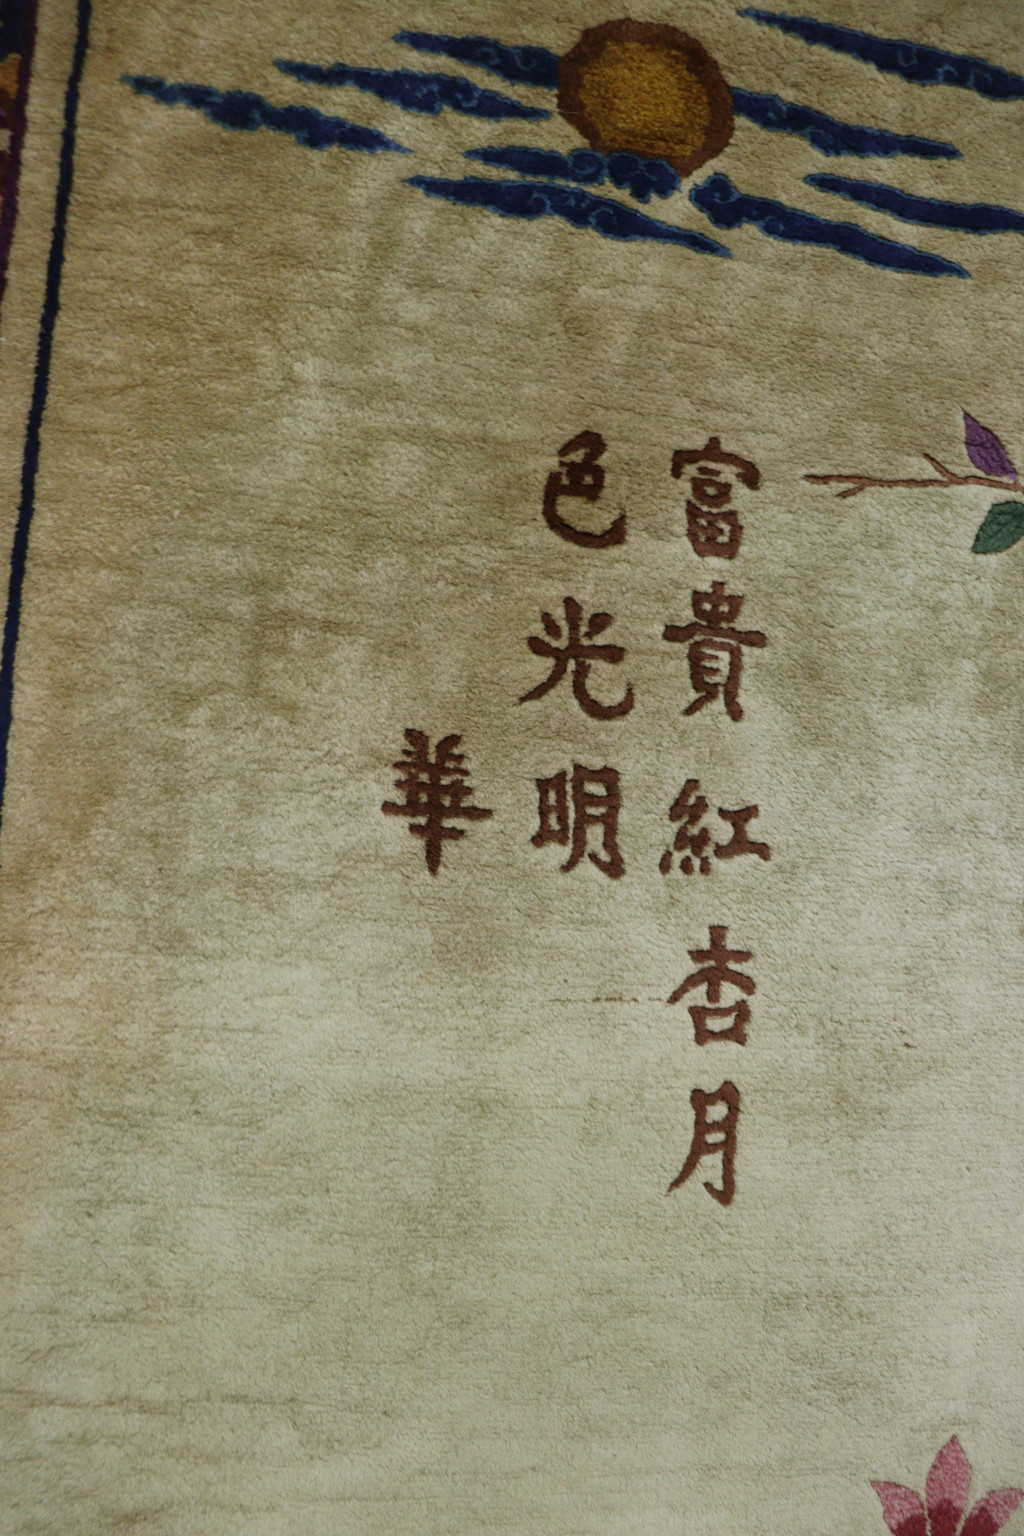 富貴紅杏月
色光明
華